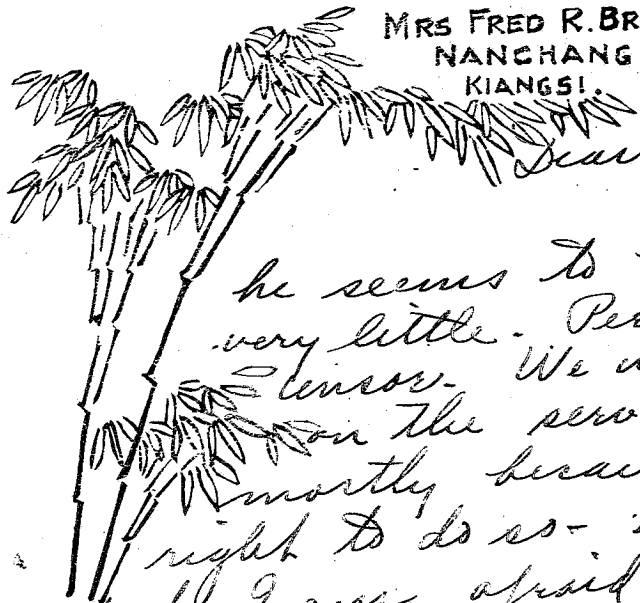 MRS FRED R. BR
NANCHANG
KIANGSI.
Dear
he seems to
very little. Per
Censor. We
on the serv
mostly becau
right to do so-
I am afraid